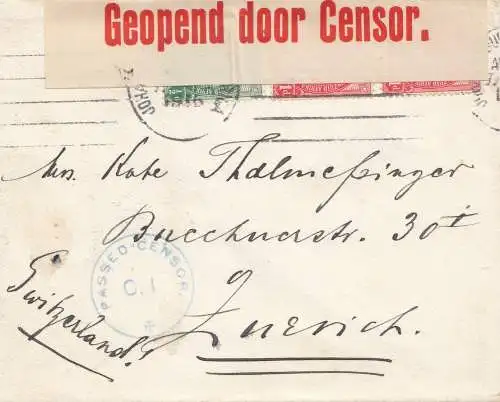 Geopend door Censor.
JOH
1916
Mrs. Kate Thalmessinger
Buechnerstr. 30 I
PASSED CENSOR
C.1
Zuerich.
Switzerland.